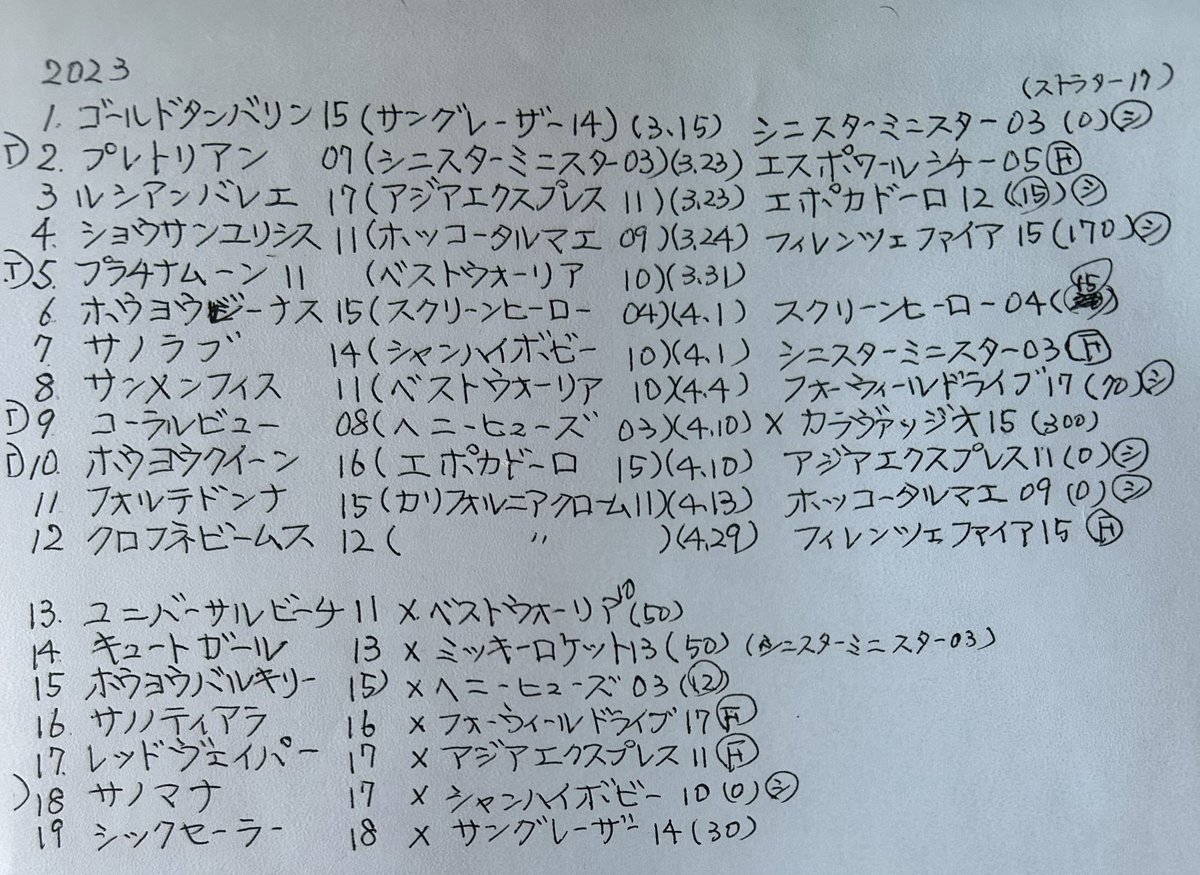 2023
(ストラター17)
1. ゴールドタンバリン 15 (サングレーザー14) (3.15) シニスターミニスター03 (0) シ
2. プレトリアン 07 (シニスターミニスター03) (3.23) エスポワールシチー05 F
3 ルシアンバレエ 17 (アジアエクスプレス 11) (3.23) エポカドーロ 12 (15) シ
4. ショウサンユリシス 11 (ホッコータルマエ 09) (3.24) フィレンツェファイア 15 (170) シ
5. プラチナムーン 11 (ベストウォーリア 10) (3.31)
6 ホウヨウビーナス 15 (スクリーンヒーロー 04) (4.1) スクリーンヒーロー04 (15)
7 サノラブ 14 (シャンハイボビー 10) (4.1) シニスターミニスター03 F
8. サンメンフィス 11 (ベストウォーリア 10) (4.4) フォーウィールドライブ17 (70) シ
9 コーラルビュー 08 (ヘニーヒューズ 03) (4.10) × カラヴァッジオ15 (300)
10. ホウヨウクイーン 16 (エポカドーロ 15) (4.10) アジアエクスプレス11 (0) シ
11 フォルテドンナ 15 (カリフォルニアクローム11) (4.13) ホッコータルマエ 09 (0) シ
12 クロフネビームス 12 ( 〃 ) (4.29) フィレンツェファイア15 F
13. ユニバーサルビーチ 11 × ベストウォーリア10 (50)
14 キュートガール 13 × ミッキーロケット13 (50) (シニスターミニスター03)
15 ホウヨウバルキリー 15) × ヘニーヒューズ 03 (12)
16 サノノティアラ 16 × フォーウィールドライブ17 F
17. レッドヴェイパー 17 × アジアエクスプレス 11 F
18 サノマナ 17 × シャンハイボビー 10 (0) シ
19 シックセーラー 18 × サングレーザー 14 (30)